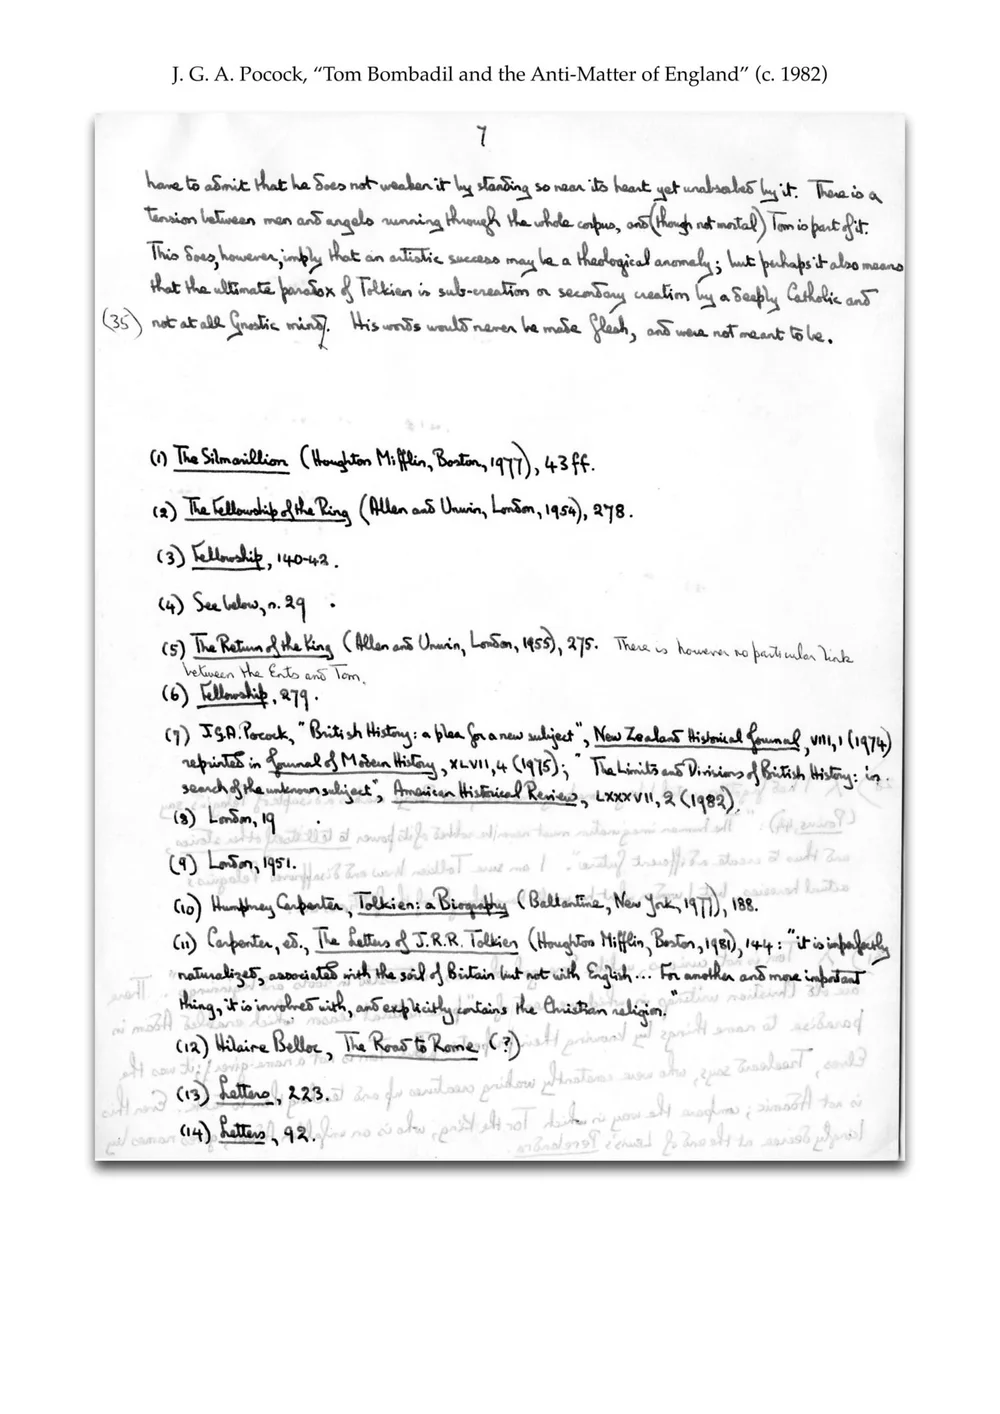 J. G. A. Pocock, “Tom Bombadil and the Anti-Matter of England” (c. 1982)
7
have to admit that he does not weaken it by standing so near its heart yet unabsorbed by it. There is a
tension between men and angels running through the whole corpus, and (though not mortal) Tom is part of it.
This does, however, imply that an artistic success may be a theological anomaly; but perhaps it also means
that the ultimate paradox of Tolkien is sub-creation or secondary creation by a deeply Catholic and
(35) not at all Gnostic mind. His words would never be made flesh, and were not meant to be.
(1) The Silmarillion (Houghton Mifflin, Boston, 1977), 43 ff.
(2) The Fellowship of the Ring (Allen and Unwin, London, 1954), 278.
(3) Fellowship, 140-42.
(4) See below, n. 29 .
(5) The Return of the King (Allen and Unwin, London, 1955), 275. There is however no particular link
between the Ents and Tom.
(6) Fellowship, 279.
(7) J.G.A. Pocock, "British History: a plea for a new subject", New Zealand Historical Journal, VIII, 1 (1974)
reprinted in Journal of Modern History, XLVII, 4 (1975); "The Limits and Divisions of British History: in
search of the unknown subject", American Historical Review, LXXXVII, 2 (1982).
(8) London, 19 .
(9) London, 1951.
(10) Humphrey Carpenter, Tolkien: a Biography (Ballantine, New York, 1977), 188.
(11) Carpenter, ed., The Letters of J.R.R. Tolkien (Houghton Mifflin, Boston, 1981), 144: "it is imperfectly
naturalized, associated with the soil of Britain but not with English... For another and more important
thing, it is involved with, and explicitly contains the Christian religion."
(12) Hilaire Belloc, The Road to Rome (?)
(13) Letters, 223.
(14) Letters, 92.